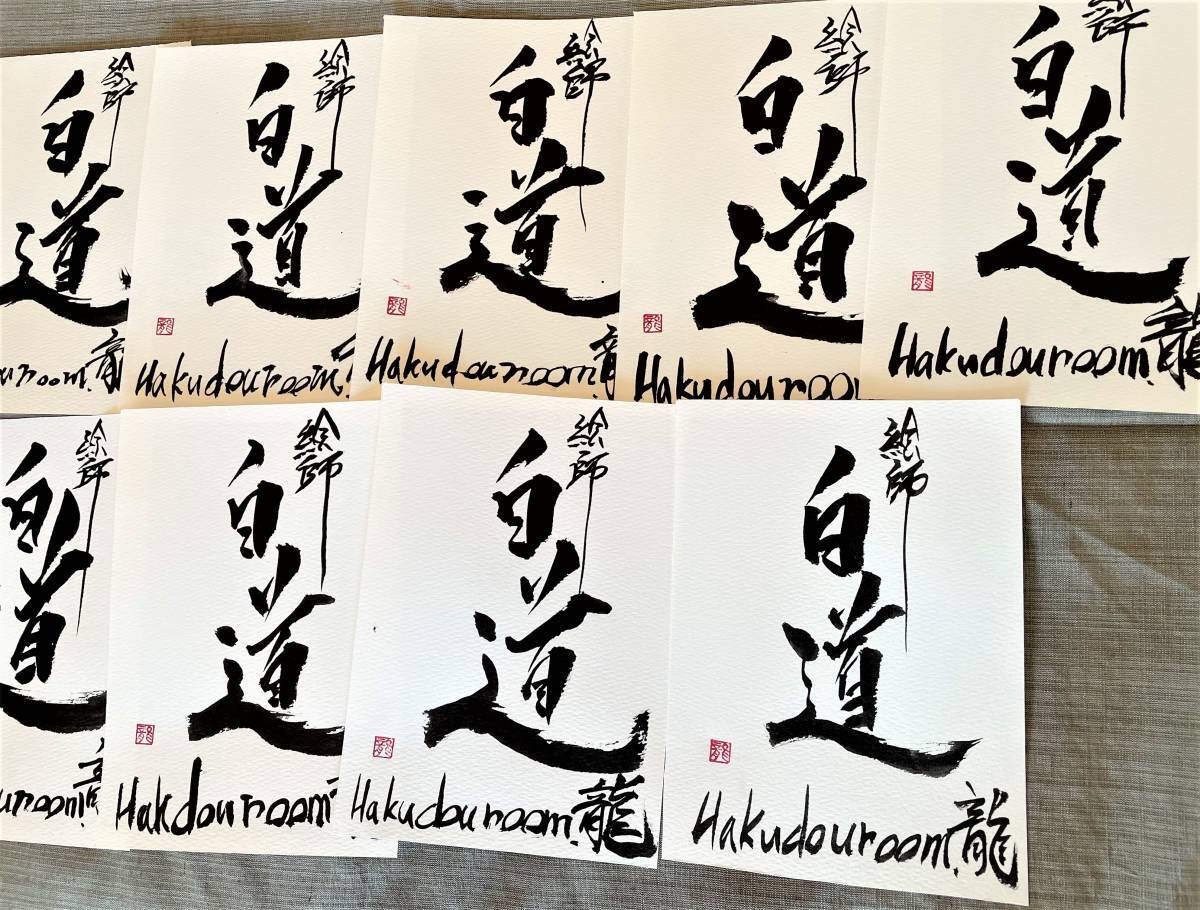 絵師
白道
Hakudouroom.
絵師
白道
Hakudouroom.
絵師
白道
Hakudouroom.龍
絵師
白道
Hakudouroo
絵師
白道
龍
Hakudouroom.龍
絵師
白道
uroom.
絵師
白道
龍
Hakdouroom
絵師
白道
龍
Hakudouroom.龍
絵師
白道
龍
Hakudouroom.龍